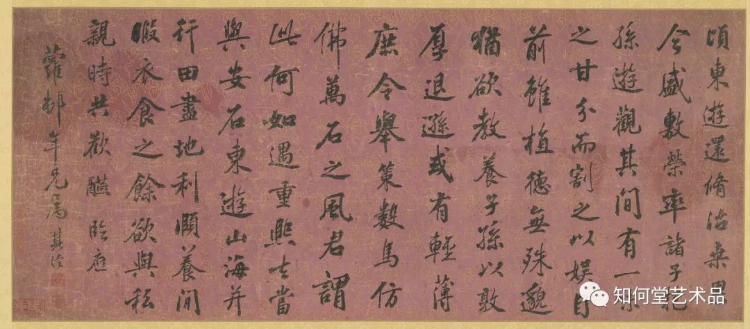 頃東遊還脩治桑果
今盛敷榮率諸子抱
孫遊觀其間有一味
之甘分而割之以娛目
前雖植德無殊邈
猶欲教養子孫以敦
厚退遜或有輕薄
庶令舉策數馬仿
佛萬石之風君謂
此何如遇重熙去當
與安石東遊山海并
行田盡地利頤養閒
暇衣食之餘欲與親
親時共歡讌臨應
蘿邨年兄屬
知何堂艺术品